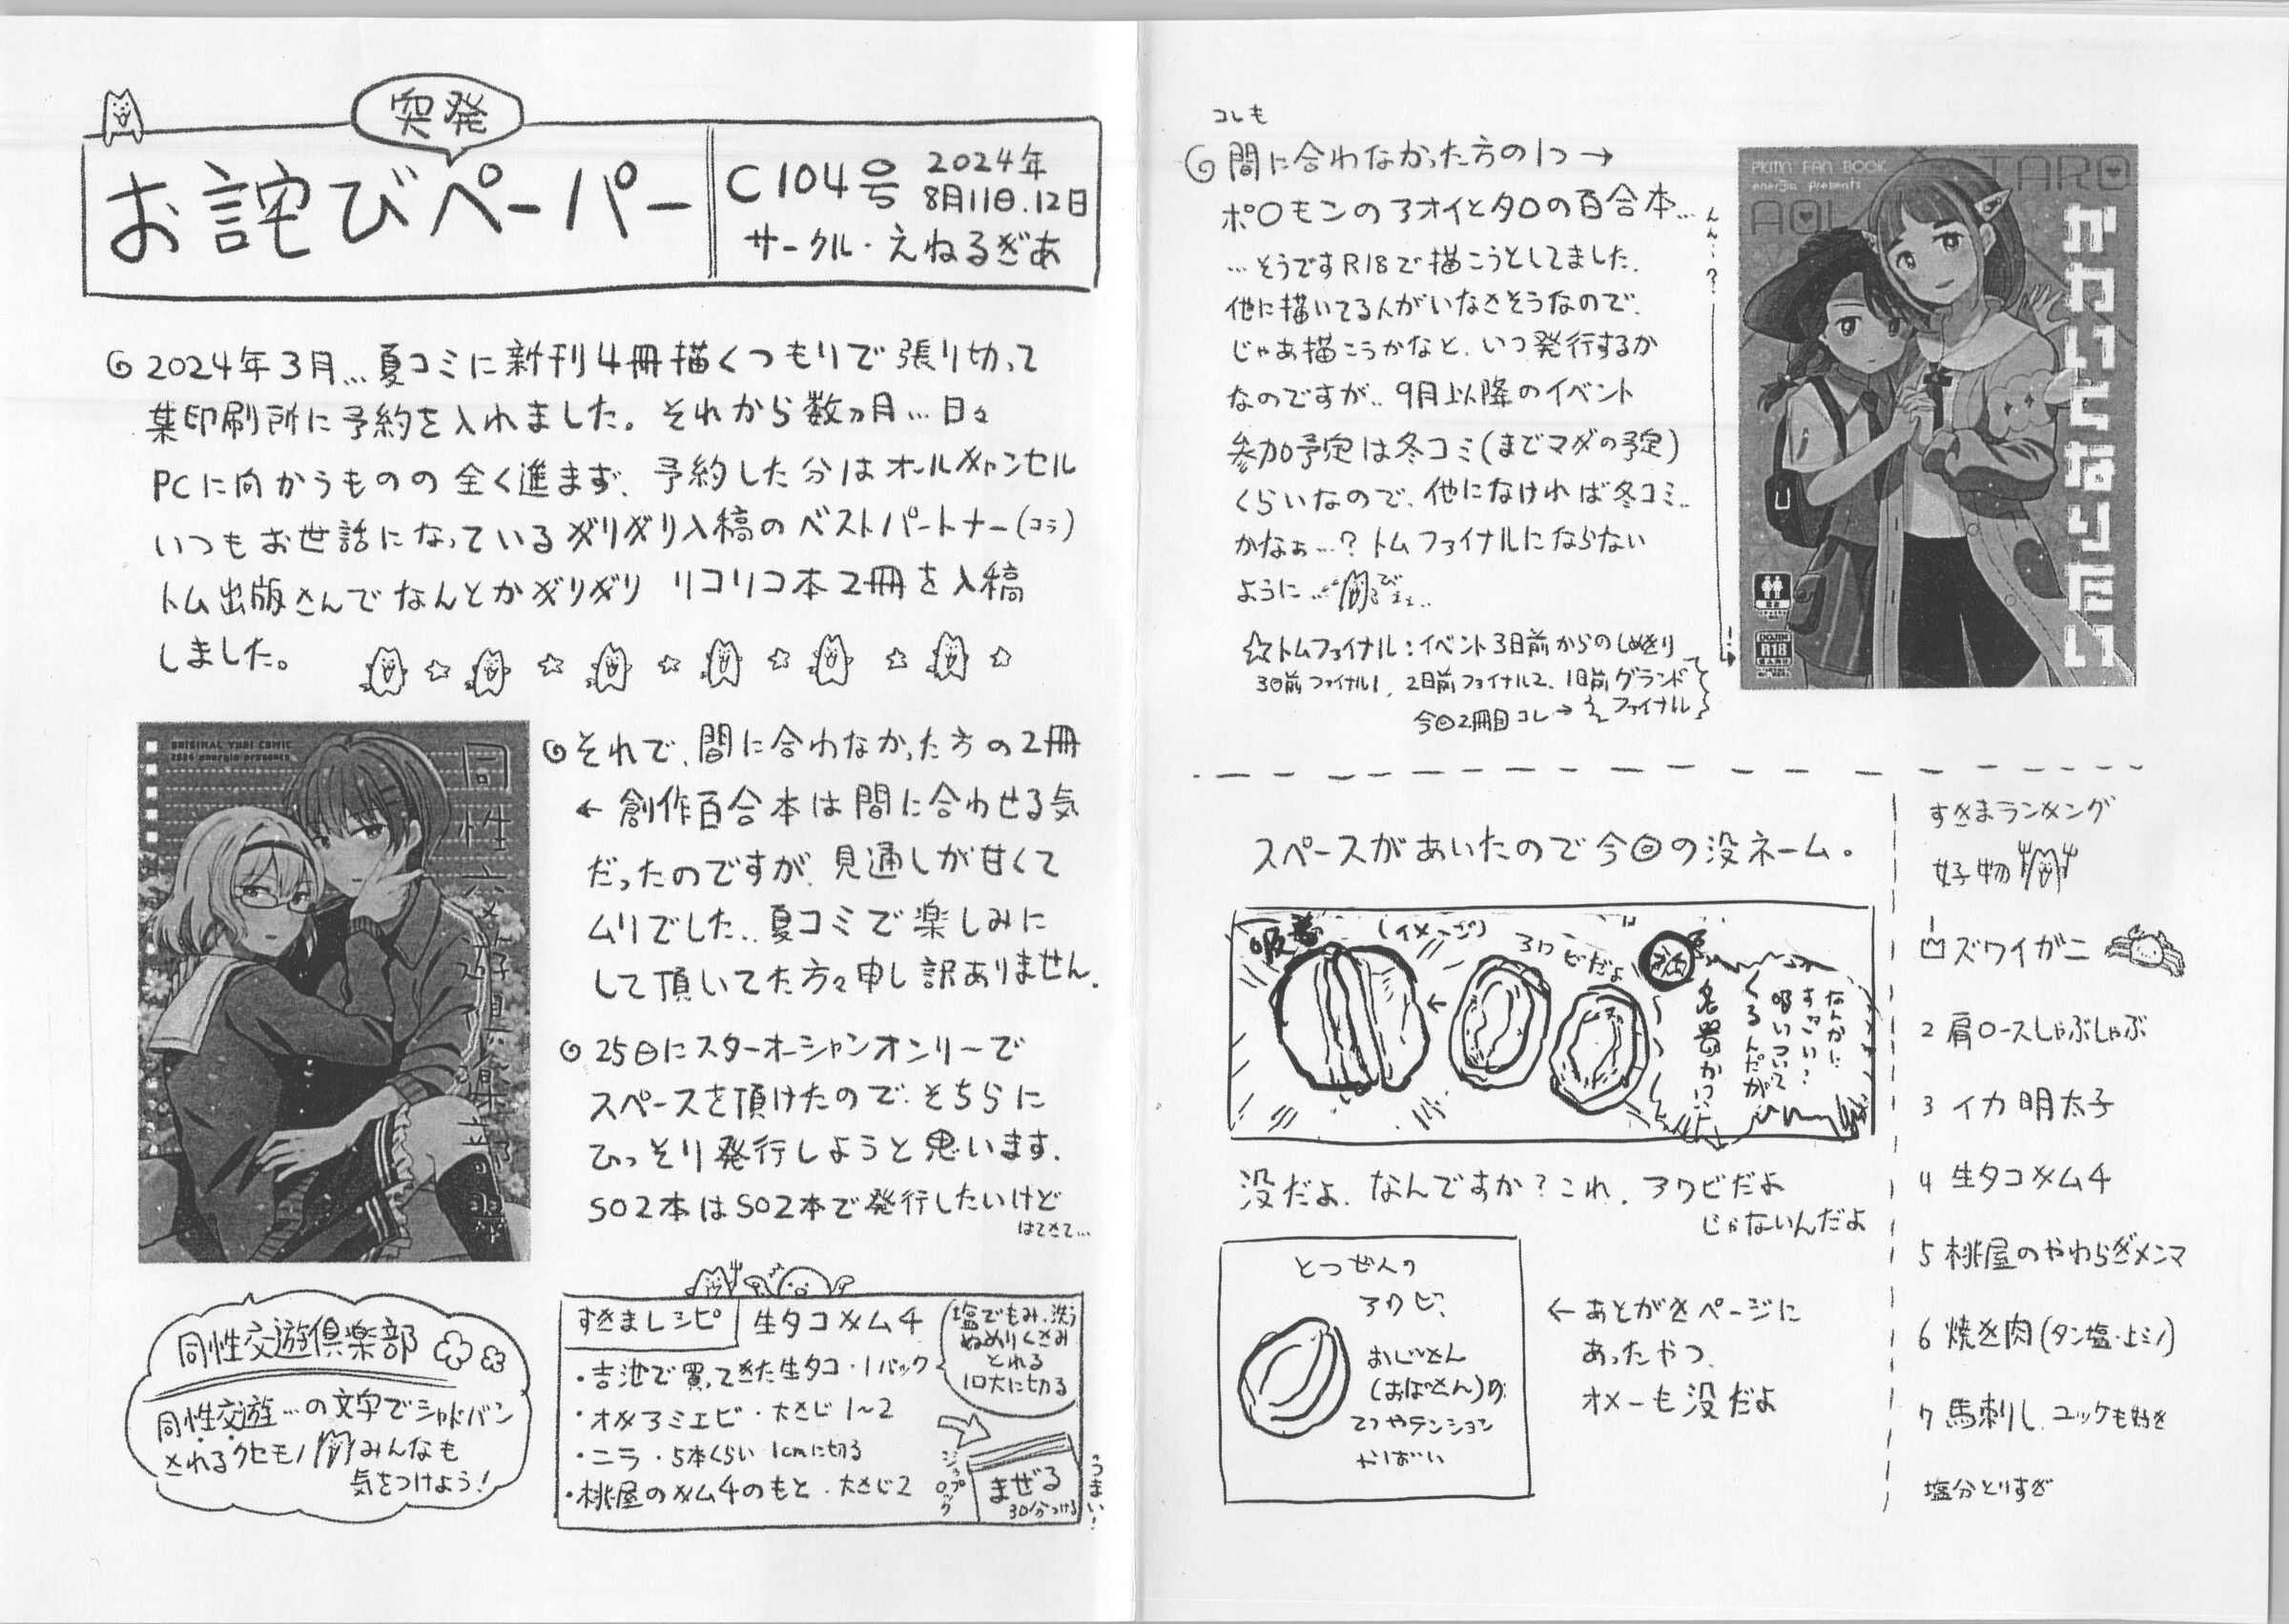 突発
お詫びペーパー
C104号
2024年
8月11日.12日
サークル・えねるぎあ
2024年3月…夏コミに新刊4冊描くつもりで張り切って
某印刷所に予約を入れました。それから数ヵ月…日々
PCに向かうものの全く進まず、予約した分はオールキャンセル
いつもお世話になっているギリギリ入稿のベストパートナー(コラ)
トム出版さんでなんとかギリギリ リコリコ本2冊を入稿
しました。
ORIGINAL YURI COMIC
2024 energia presents
同性交遊倶楽部
それで、間に合わなかった方の2冊
←創作百合本は間に合わせる気
だったのですが、見通しが甘くて
ムリでした..夏コミで楽しみに
して頂いてた方々申し訳ありません.
25日にスターオーシャンオンリーで
スペースを頂けたので、そちらに
ひっそり発行しようと思います.
SO2本はSO2本で発行したいけど
はてさて…
同性交遊倶楽部
同性交遊…の文字でシャドバン
されるクセモノ みんなも
気をつけよう!
すきまレシピ
生タコキムチ
・吉池で買ってきた生タコ・1パック
・オキアミエビ・大さじ1~2
・ニラ・5本くらい 1cmに切る
・桃屋のキムチのもと・大さじ2
塩でもみ、洗う
ぬめりくさみ
とれる
1口大に切る
ジップロック
まぜる
30分つける
うまい!
コレも
間に合わなかった方の1つ→
ポ〇モンのアオイとタロの百合本…
んん…?
…そうですR18で描こうとしてました.
他に描いてる人がいなさそうなので.
じゃあ描こうかなと、いつ発行するか
なのですが.. 9月以降のイベント
参加予定は冬コミ(までマダの予定)
くらいなので、他になければ冬コミ..
かなぁ…? トムファイナルにならない
ように…
☆トムファイナル:イベント3日前からのしめきり
3日前ファイナル1、2日前ファイナル2、1日前グランド
ファイナル
今回2冊目コレ→
PKMN FAN BOOK
energia presents
TARO
AOI
かわいくなりたい
DOJIN
R18
スペースがあいたので今回の没ネーム。
吸着
(イメージ)
アワビだよ
なんかに
すごい…
吸いついて
くるんだが
名器かっ…
没だよ. なんですか?これ. アワビだよ
じゃないんだよ
とつぜんの
アワビ、
おじさん
(おばさん)の
てつやテンション
やばい
←あとがきページに
あったやつ.
オメーも没だよ
すきまランキング
好物
ズワイガニ
2 肩ロースしゃぶしゃぶ
3 イカ明太子
4 生タコキムチ
5 桃屋のやわらぎメンマ
6 焼き肉(タン塩・上ミノ)
7 馬刺し、ユッケも好き
塩分とりすぎ